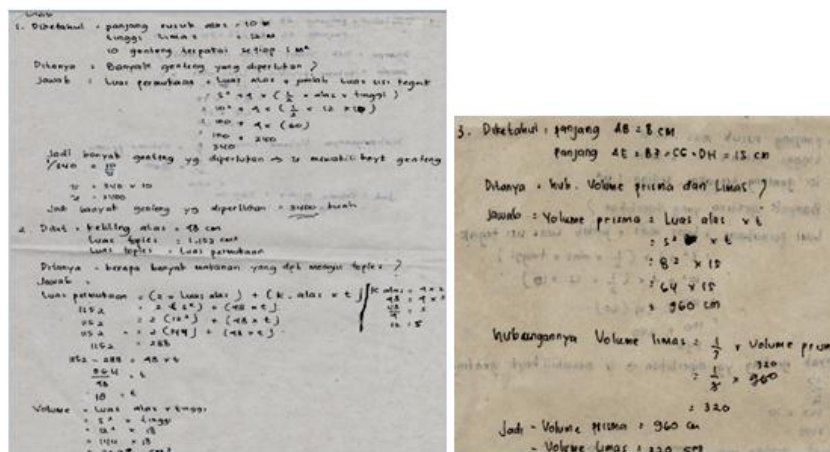 1. Diketahui : panjang rusuk alas = 10 m
tinggi limas = 12 m
10 genteng terpakai setiap 1 m²
Ditanya = Banyak genteng yang diperlukan ?
Jawab : Luas permukaan = Luas alas + jumlah Luas sisi tegak
= s² + 4 × ( 1/2 × alas × tinggi )
= 10² + 4 × ( 1/2 × 12 × 10 )
= 100 + 4 × (60)
= 100 + 240
= 340
Jadi banyak genteng yg diperlukan → x mewakili genteng
1/340 = 10/x
x = 340 × 10
x = 3400
Jadi banyak genteng yg diperlukan = 3400 buah
2. Diket = keliling alas = 48 cm
Luas toples = 1.152 cm²
Luas toples = Luas permukaan
Ditanya = berapa banyak makanan yang dpt mengisi toples ?
Jawab :
Luas permukaan = (2 × Luas alas) + (k. alas × t)
1152 = 2 (s²) + (48 × t)
1152 = 2 (12²) + (48 × t)
1152 = 2 (144) + (48 × t)
1152 = 288
1152 - 288 = 48 × t
864/48 = t
18 = t
k alas = 4 × s
48 = 4 × s
48/4 = s
12 = s
Volume = Luas alas × tinggi
= s² × tinggi
= 12² × 18
= 144 × 18
3. Diketahui : panjang AB = 8 cm
panjang AE = BF = CG = DH = 15 cm
Ditanya = hub. Volume prisma dan Limas ?
Jawab = Volume prisma = Luas alas × t
= s² × t
= 8² × 15
= 64 × 15
= 960 cm
hubungannya Volume limas = 1/3 × Volume prisma
= 1/3 × 960 320
= 320
Jadi - Volume prisma = 960 cm
- Volume Limas = 320 cm